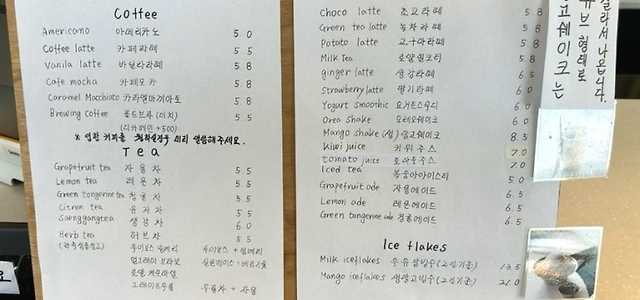 Coffee
Americano 아메리카노 5 0
Coffee latte 카페라떼 5 5
Vanila latte 바닐라라떼 5 8
Cafe mocha 카페모카 5 8
Caramel Macchiato 카라멜마끼아또 5 8
Brewing Coffee 콜드브루 (더치) 5 5
(디카페인 +500)
Tea
Grapefruit tea 자몽차 5 5
Lemon tea 레몬차 5 5
Green tangerine tea 청귤차 5 5
Citron tea 유자차 5 5
Saenggangtea 생강차 6 0
Herb tea 허브차 5 5
루이보스
얼그레이
로얄 캐모마일
Choco latte 초코라떼 5 8
Green tea latte 녹차라떼 5 8
Potato latte 고구마라떼 5 8
Milk Tea 로얄밀크티 5 8
ginger latte 생강라떼 6 5
Strawberry latte 딸기라떼 6 0
Yogurt smoothie 요거트스무디 6 0
Oreo shake 오레오쉐이크 6 0
Mango shake (생) 생망고쉐이크 8 5
Kiwi juice 키위주스 7.0
tomato juice 토마토주스 7.0
Iced tea 복숭아아이스티 5 0
Grapefruit ade 자몽에이드 6. 5
Lemon ade 레몬에이드 6. 5
Green tangerine ade 청귤에이드 6. 5
Ice flakes
Milk iceflakes 우유팥빙수 (2인기준) 13.5
Mango iceflakes 생망고빙수 (2인기준) 21.0
잘라서 나옵니다.
큐브 형태로
망고쉐이크는